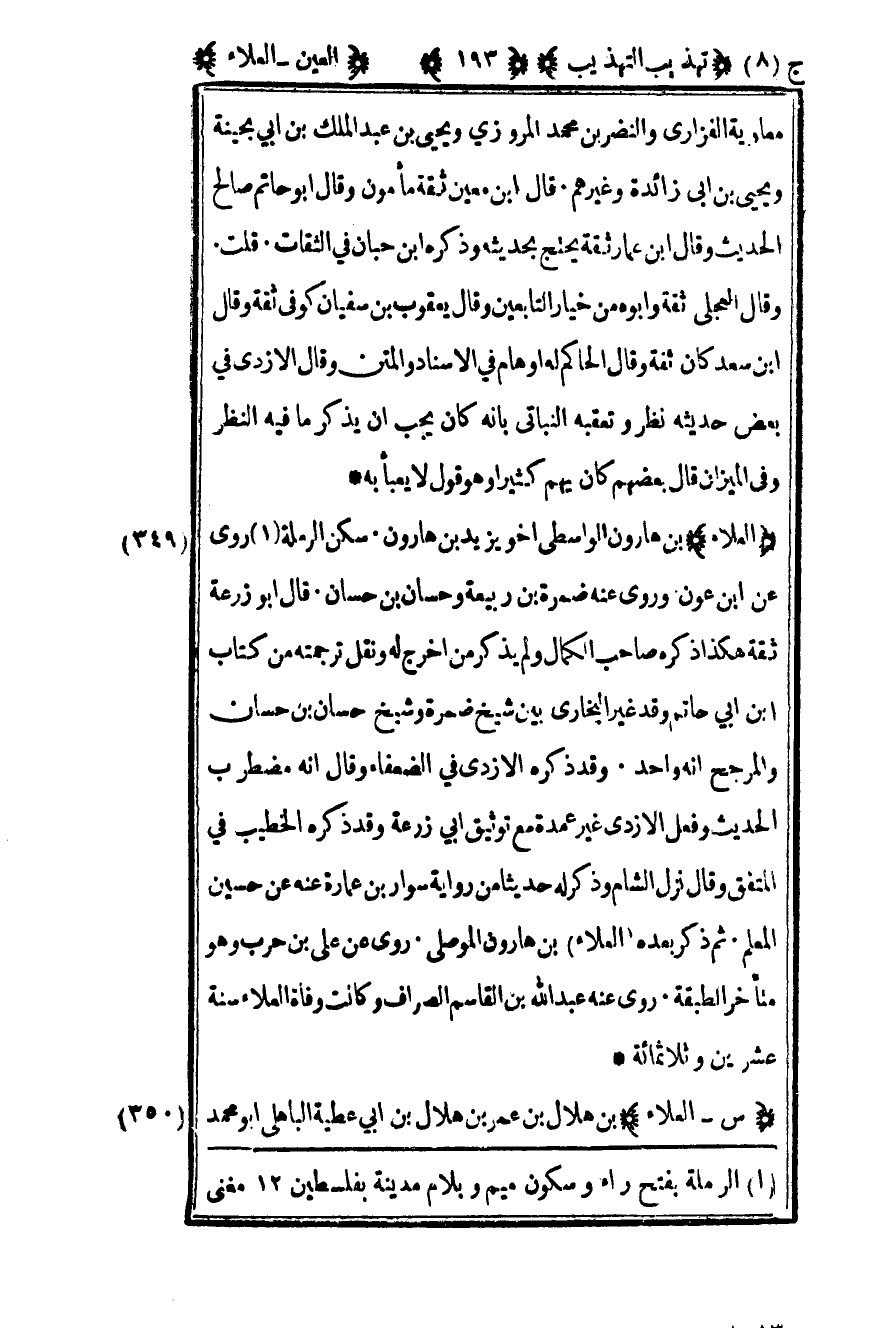 ج (٨) ﴿تهذيب التهذيب﴾ ﴿١٩٣﴾ ﴿العين - العلاء﴾
معاوية الفزارى والنضر بن محمد المروزي ويحيى بن عبد الملك بن ابي بحينة
ويحيى بن ابى زائدة وغيرهم · قال ابن معين ثقة مأمون وقال ابو حاتم صالح
الحديث وقال ابن عمار ثقة يحتج بحديثه وذكره ابن حبان في الثقات · قلت ·
وقال العجلى ثقة وابوه من خيار التابعين وقال يعقوب بن سفيان كوفى ثقة وقال
ابن سعد كان ثقة وقال الحاكم له اوهام في الاسناد والمتن وقال الازدى في
بعض حديثه نظر و تعقبه النباتى بانه كان يجب ان يذكر ما فيه النظر
وفى الميزان قال بعضهم كان يهم كثيرا وهو قول لا يعبأ به *
﴿العلاء﴾ بن هارون الواسطى اخو يزيد بن هارون · سكن الرملة (١) روى (٣٤٩)
عن ابن عون وروى عنه ضمرة بن ربيعة وحسان بن حسان · قال ابو زرعة
ثقة هكذا ذكره صاحب الكمال ولم يذكر من اخرج له ونقل ترجمته من كتاب
ابن ابي حاتم وقد غير البخارى بين شيخ ضمرة وشيخ حسان بن حسان
والمرجح انه واحد · وقد ذكره الازدى في الضعفاء وقال انه مضطرب
الحديث وفعل الازدى غير عمدة مع توثيق ابي زرعة وقد ذكره الخطيب في
المتفق وقال نزل الشام وذكر له حديثا من رواية سوار بن عمارة عنه عن حسين
المعلم · ثم ذكر بعده (العلاء) بن هارون الموصلى · روى عن على بن حرب وهو
متأخر الطبقة · روى عنه عبد الله بن القاسم الصراف وكانت وفاة العلاء سنة
عشرين و ثلاثمائة *
﴿س - العلاء﴾ بن هلال بن عمر بن هلال بن ابي عطية الباهلى ابو محمد (٣٥٠)
(١) الرملة بفتح راء و سكون ميم و بلام مدينة بفلسطين ١٢ مغنى